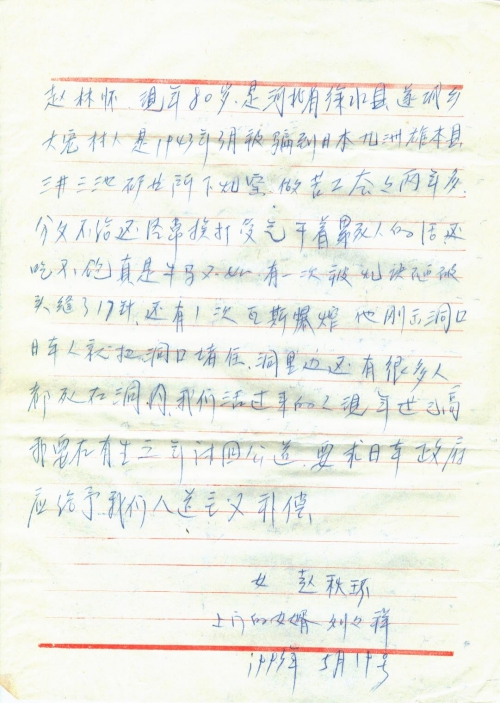 赵林怀 现年80岁.是河北省徐水县遂城乡
大 村人是1943年3月被骗到日本九洲雄本县
三井三池矿业所下坑里.做苦工 两年多.
分文不给还经常挨打受气干着累死人的活还
吃不饱真是牛马不如.有一次被 块砸破
头缝了17针.还有1次瓦斯爆煌他刚出洞口
日本人就把洞口堵住.洞里边还有很多人
都死在洞内.我们活过来的人现年世已高
我要在有生之年讨回公道.要求日本政府
应给予我们人道主义补偿.
女 赵秋环
上门的女婿 刘 祥
5月19号